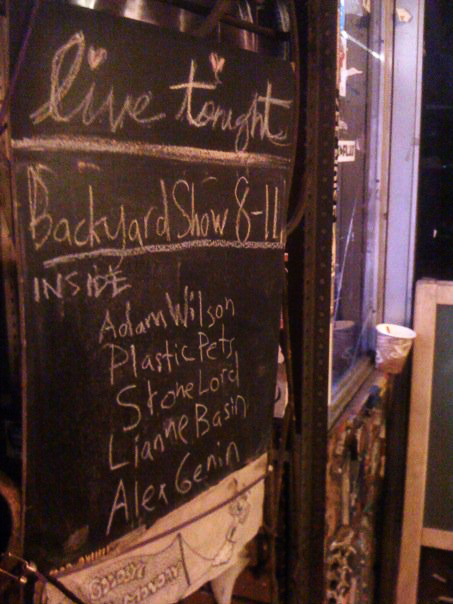 live tonight
Backyard Show 8-11
INSIDE
Adam Wilson
Plastic Pets
Stone Lord
Lianne Basin
Alex Genin